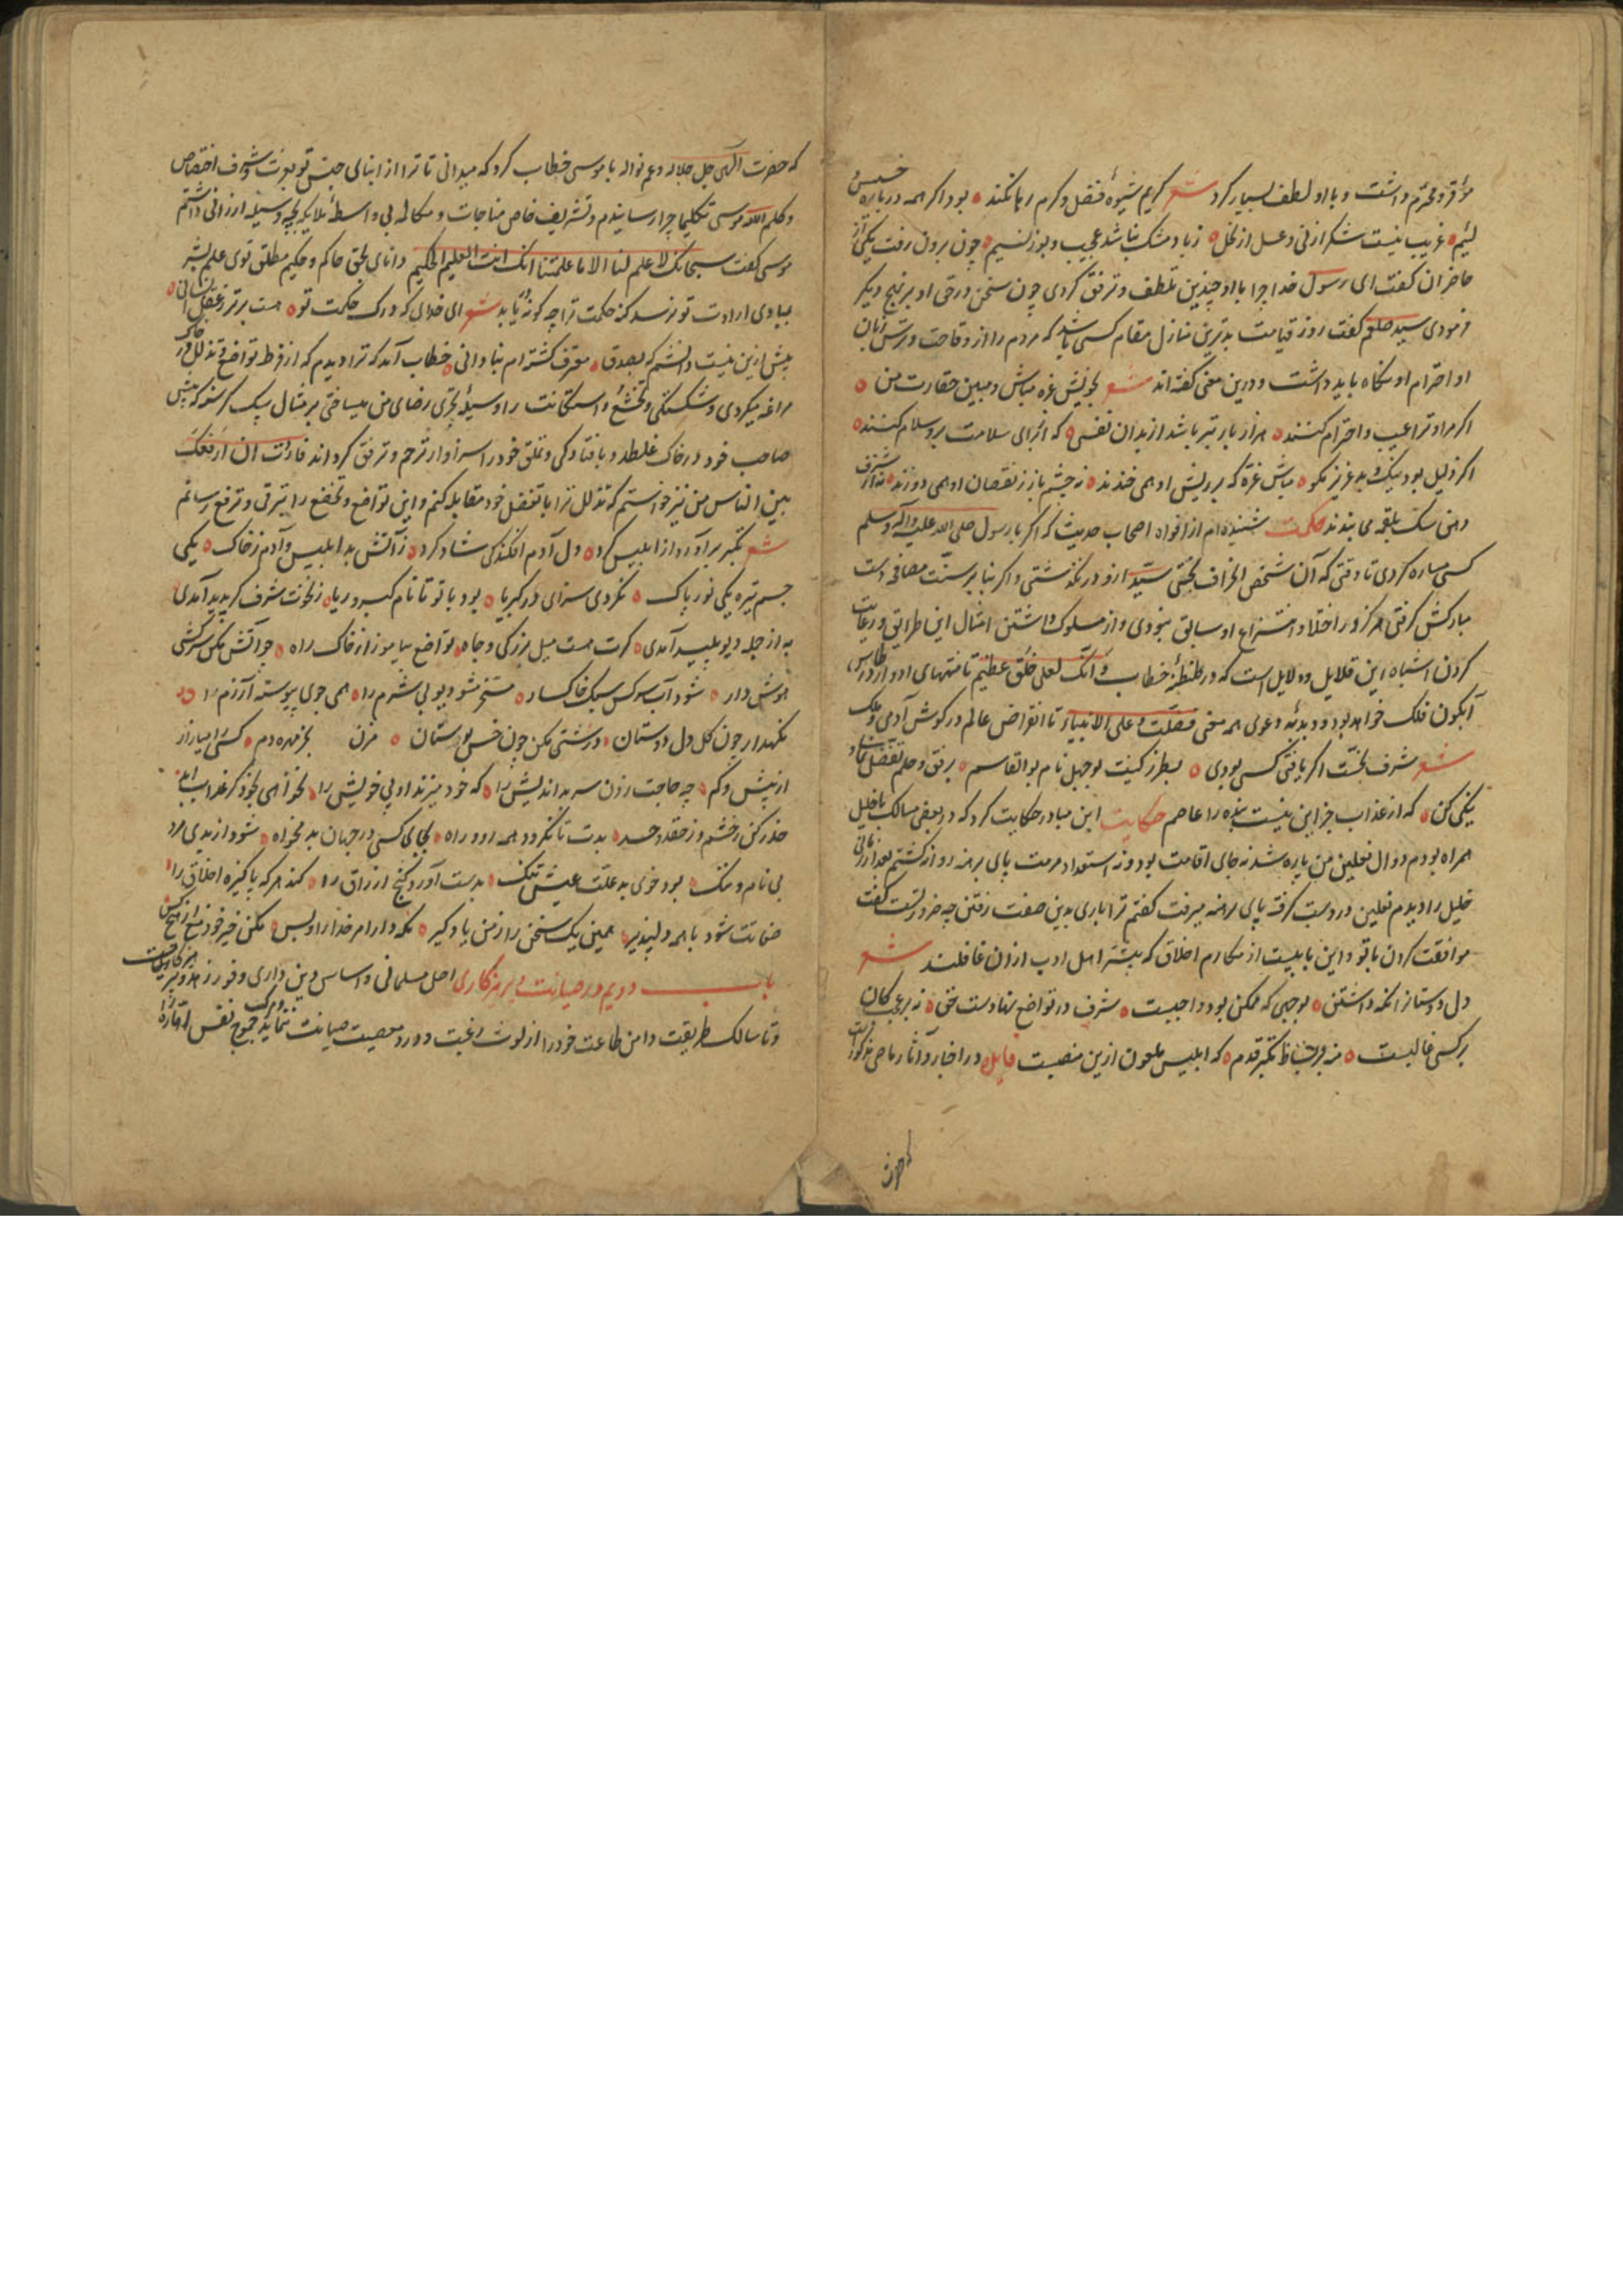 موقر و محترم داشت و با او لطف بسیار کرد شعر کریم شیوهٔ فضل و کرم رها نکند بود اگر همه درباره خسیس
لئیم غریب نیست شکر از نی و عسل از نخل زباد و مشک نباشد عجیب و بوز نسیم چون برون رفت یکی از
حاضران گفت ای رسول خدا چرا با او چندین تلطف و ترفق کردی چون سخن در حق او بر نهج دیگر
فرمودی سید صلعم گفت روز قیامت بدترین منازل مقام کسی باشد که مردم را از وقاحت و ترس زبان
او احترام او نگاه باید داشت و درین معنی گفته اند شعر بخویش غره مباش و مبین حقارت من
اگر مرا و ترا عیب و احترام کنند هزار بار بتر باشد از بدان نفسی که از برای سلامت برو سلام کنند
اگر ذلیل بود نیک و بد عزیز مگو مباش غره که بر ریش او همی خندند نه چشم باز ز نقصان او همی دوزند نه از شرف
دهن سگ بلقمه می بندند حکمت شنیده ام از افواه اصحاب حدیث که اگر با رسول صلی الله علیه و آله وسلم
کسی مساره کردی تا وقتی که آن شخص انحراف نجستی سید ازو در نگذشتی و اگر بنا بر سنت مصافحه دست
مبارکش گرفتی هرگز در اختلاف و انتزاع او سابق نبودی و از مسلوک داشتن امثال این طرایق و رعایت
کردن اشباه این قلایل و دلایل است که در طنطنهٔ خطاب و انک لعلی خلق عظیم تا منتهای ادوار در طاس
آبگون فلک خواهد بود و دبدبهٔ دعوی همه معنی فضلت علی الانبیاء تا انقراض عالم در گوش آدمی و ملک
شعر شرف نجست اگر یافتی کسی بودی بطرز کنیت بوجهل نام بوالقاسم برفق و حلم تفضل نمای و
نیکی کن که از عذاب جز این نیست بنده را عاصم حکایت ابن مبادر حکایت کرد که در بعضی مسالک با خلیل
همراه بودم دوال نعلین من پاره شد نه جای اقامت بود و نه استعداد مرمت پای برهنه روانه گشتم بعد از زمانی
خلیل را دیدم نعلین در دست گرفته پای برهنه میرفت گفتم ترا باری بدین صفت رفتن چه ضرورتست گفت
موافقت کردن با تو و این بابیست از مکارم اخلاق که بیشتر اهل ادب از آن غافلند شعر
دل دوستان نگه داشتن بوجهی که ممکن بود واجبست شرف در تواضع نهادست حق نه بر عجب کان
بر کسی غالبست منه بر بساط تکبر قدم که ابلیس ملعون ازین منصبست در اخبار و آثار ماضی مذکور است
که حضرت
که حضرت الهی جل جلاله و عم نواله با موسی خطاب کرد که میدانی تا ترا از ابنای جنس تو بعزت شرف اختصاص
و کلم الله موسی تکلیما چرا رسانیدم و تشریف خاص مناجات و مکالمه بی واسطهٔ ملایکه بچه وسیله ارزانی داشتم
موسی گفت سبحانک لا علم لنا الا ما علمتنا انک انت العلیم الحکیم دانای بحق حاکم و حکیم مطلق توی علم بشر
بمبادی ارادت تو نرسد کنه حکمت ترا چه گونه دریابد شعر ای خدای که درک حکمت تو هست برتر ز عقل انسانی
بیش ازین نیست دانشم که بصدق معترف گشته ام بنادانی خطاب آمد که ترا دیدم که از فرط تواضع و تذلل در خاک
مراغه میکردی و شکستگی و تخشع و استکانت را وسیلهٔ تحری رضای من میساختی بر مثال سگ گرسنه که پیش
صاحب خود در خاک غلطد و بافتادگی و تملق خود را سزاوار ترحم و ترفق گرداند فاردت ان ارفعک
بین الناس من نیز خواستم که تذلل ترا با تفضل خود مقابله کنم و این تواضع و تخضع را بترقی و ترفع رسانم
شعر تکبر برآورد از ابلیس گرد دل آدم افکندگی شاد کرد ز آتش بد ابلیس و آدم ز خاک یکی
جسم تیره یکی نور پاک نکردی سزای در کبریا بود با تو تا نام کبر و ریا ز نخوت شرف گر پدید آمدی
به از جمله دیو پلید آمدی گرت هست میل بزرگی و جاه تواضع بیاموز از خاک راه چو آتش مکن سرکشی
هوش دار شود آب سرکش سبک خاکسار مسخر مشو دیو بی شرم را همی جوی پیوسته آزرم را
نگهدار چون گل دل دوستان درشتی مکن چون خس بوستان مزن بجز مهره دم کسی را میازار
از بیش و کم چه حاجت زدن سر بداندیش را که خود میزند او پی خویش را نخواهی بخود گر عذاب ابد
حذر کن ز خشم و ز حقد و حسد بدت تا نگردد همه ارد راه بجای کسی در جهان بد مخواه شود از بدی مرد
بی نام و ننگ بود خوی بد علت عیش تنگ بدست آورد گنج ارزاق را کند هر که پاکیزه اخلاق را
ضمانت شود با همه دلپذیر همین یک سخن را ز من یاد گیر نگه دار امر خدا را و بس مکن خیر خود منع از هیچ کس
باب دویم در صیانت و پرهیزگاری اصل مسلمانی و اساس دین داری وفور زهد و پرهیزگاریست
و تا سالک طریقت دامن طاعت خود را از لوث رغبت و درد معصیت صیانت ننماید و مرکب جموح نفس اماره را